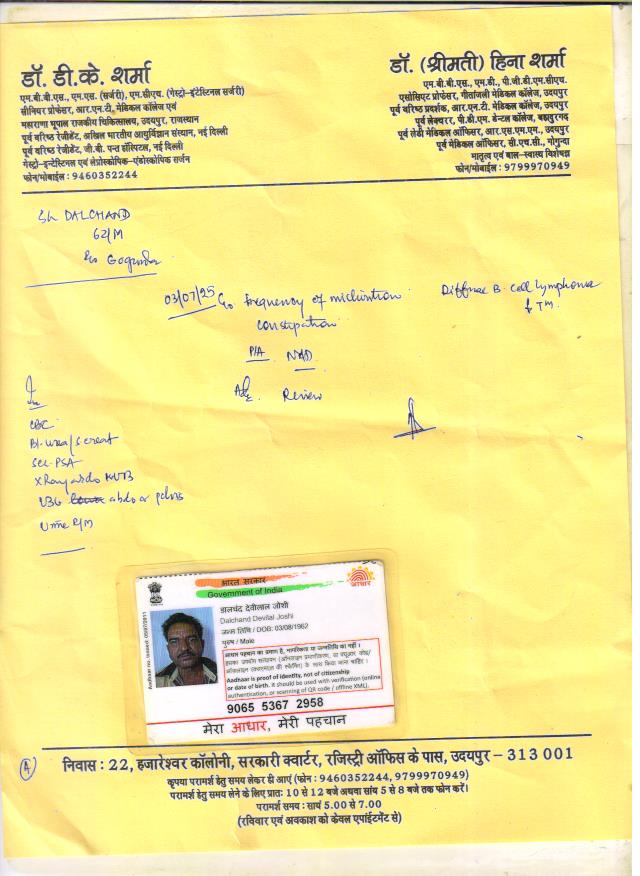 डॉ. डी.के. शर्मा
एम.बी.बी.एस., एम.एस. (सर्जरी), एम.सीएच. (गेस्ट्रो-इंटेस्टिनल सर्जरी)
सीनियर प्रोफेसर, आर.एन.टी. मेडिकल कॉलेज एवं
महाराणा भूपाल राजकीय चिकित्सालय, उदयपुर. राजस्थान
पूर्व वरिष्ठ रेजीडेंट, अखिल भारतीय आयुर्विज्ञान संस्थान, नई दिल्ली
पूर्व वरिष्ठ रेजीडेंट, जी.बी. पन्त हॉस्पिटल, नई दिल्ली
गेस्ट्रो-इन्टेस्टिनल एवं लेप्रोस्कोपिक-एंडोस्कोपिक सर्जन
फोन/मोबाईल : 9460352244
डॉ. (श्रीमती) हिना शर्मा
एम.बी.बी.एस., एम.डी., पी.जी.डी.एम.सीएच.
एसोसिएट प्रोफेसर, गीतांजली मेडिकल कॉलेज, उदयपुर
पूर्व वरिष्ठ प्रदर्शक, आर.एन.टी. मेडिकल कॉलेज, उदयपुर
पूर्व लेक्चरर, पी.डी.एम. डेन्टल कॉलेज, बहादुरगढ़
पूर्व लेडी मेडिकल ऑफिसर, आर.एस.एम.एम., उदयपुर
पूर्व मेडिकल ऑफिसर, सी.एच.सी., गोगुन्दा
मातृत्व एवं बाल-स्वास्थ्य विशेषज्ञ
फोन/मोबाईल : 9799970949
Sh DALCHAND
62/M
R/o Gogunda
03/07/25 C/o Frequency of micturition
constipation
Diffuse B. Cell Lymphoma
TM.
P/A NAD
Adv. Review
CBC
Bl. urea/S creat
Ser. PSA
X Ray abdo KUB
USG abdo & pelvis
Urine R/M
भारत सरकार
Government of India
आधार
Aadhaar no. issued: 05/07/2011
डालचंद देवीलाल जोशी
Dalchand Devilal Joshi
जन्म तिथि / DOB: 03/08/1962
पुरुष / Male
आधार पहचान का प्रमाण है, नागरिकता या जन्मतिथि का नहीं।
Aadhaar is proof of identity, not of citizenship
or date of birth. It should be used with verification (online
authentication, or scanning of QR code / offline XML).
9065 5367 2958
मेरा आधार, मेरी पहचान
A
निवास : 22, हजारेश्वर कॉलोनी, सरकारी क्वार्टर, रजिस्ट्री ऑफिस के पास, उदयपुर - 313 001
कृपया परामर्श हेतु समय लेकर ही आएं (फोन : 9460352244, 9799970949)
परामर्श हेतु समय लेने के लिए प्रातः 10 से 12 बजे अथवा सांय 5 से 8 बजे तक फोन करें।
परामर्श समय : सायं 5.00 से 7.00
(रविवार एवं अवकाश को केवल एपॉइंटमेंट से)